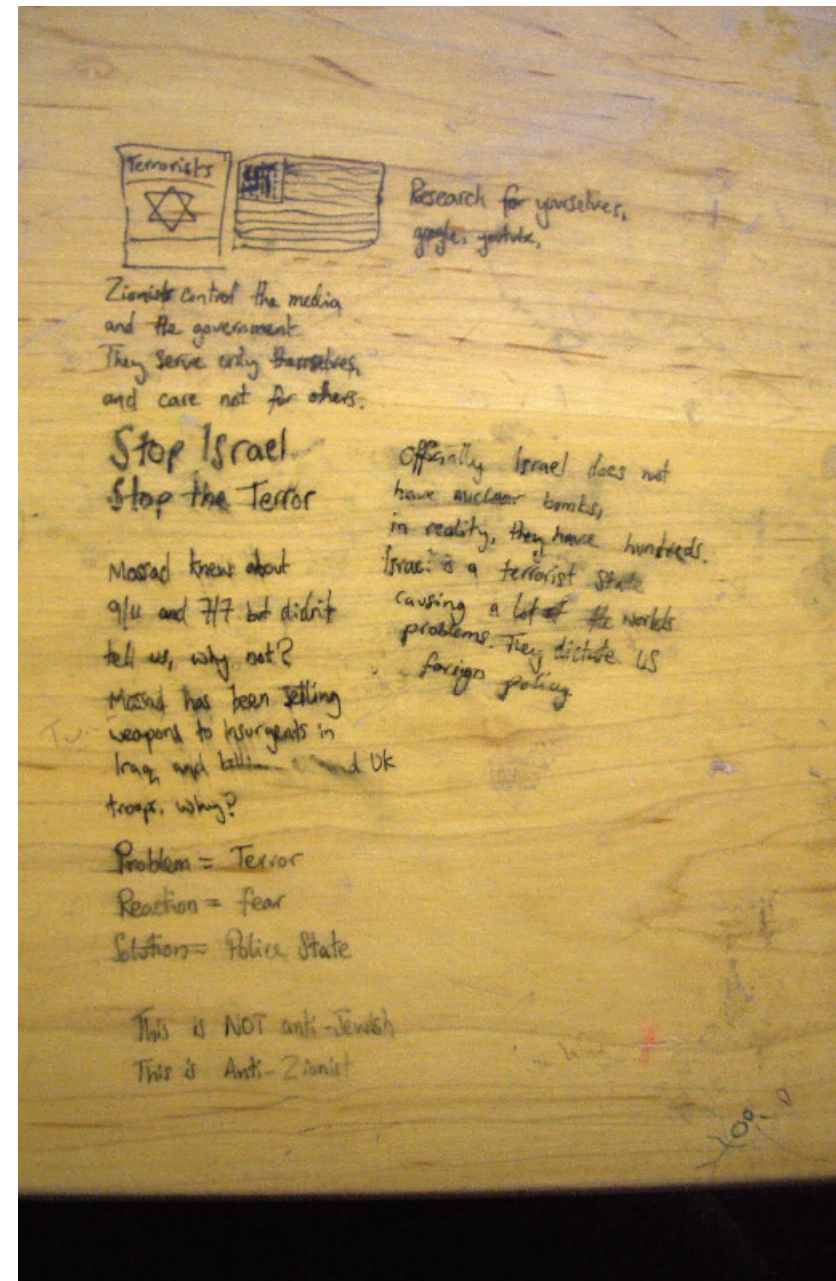 Terrorists
Research for yourselves,
google, youtube,
Zionists control the media
and the government
They serve only themselves,
and care not for others.
Stop Israel
Stop the Terror
Mossad knew about
9/11 and 7/7 but didn't
tell us, why not?
Mossad has been selling
weapons to Insurgents in
Iraq, and UK
troops. why?
Problem = Terror
Reaction = fear
Solution = Police State
This is NOT anti-Jewish
This is Anti-Zionist
Officially Israel does not
have nuclear bombs,
in reality, they have hundreds.
Israel is a terrorist state
causing a lot of the worlds
problems. They dictate US
foreign policy.